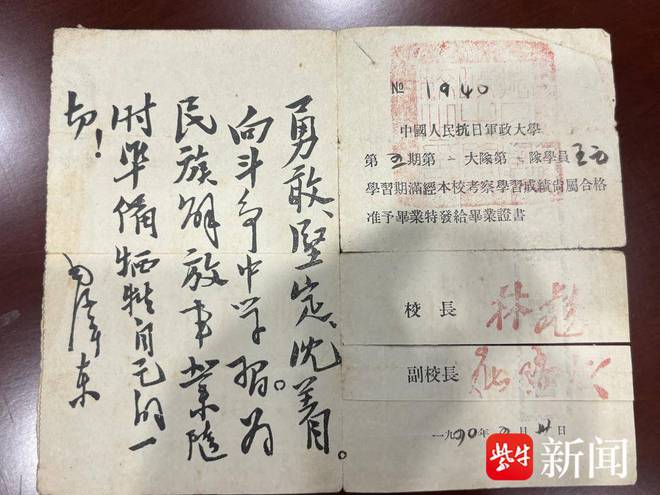 勇敢、堅定、沈着。
向斗争中学習。为
民族解放事業隨
时準備牺牲自己的一
切！
毛泽东
№ 1940
中國人民抗日軍政大學
第五期第一大隊第一隊學員王
學習期滿經本校考察學習成績尙屬合格
准予畢業特發給畢業證書
校長 林彪
副校長
一九四〇年 月 日
紫牛新闻